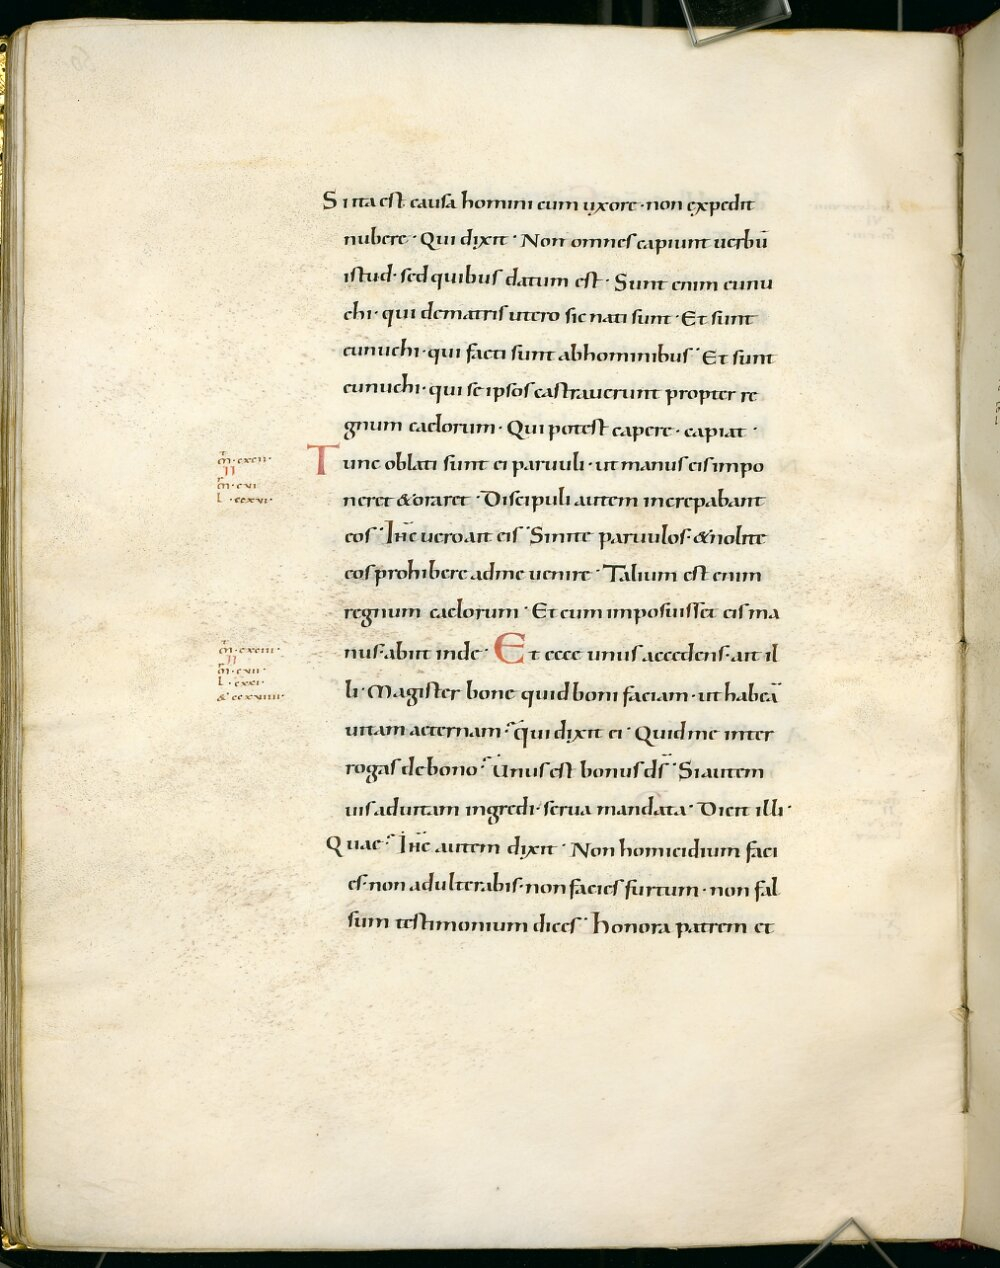 Si ita est causa homini cum uxore · non expedit
nubere · Qui dixit · Non omnes capiunt uerbū
istud · sed quibus datum est · Sunt enim eunu
chi · qui dematris utero sic nati sunt · Et sunt
eunuchi · qui facti sunt abhominibus · Et sunt
eunuchi · qui se ipsos castrauerunt propter re
gnum caelorum · Qui potest capere · capiat ·
m̄ · cxcii ·
II
m̄ · cvi
L · ccxvi ·
Tunc oblati sunt ei paruuli · ut manus eis impo
neret & oraret · Discipuli autem increpabant
eos · Ih̄c uero ait eis · Sinite paruulos · & nolite
eos prohibere adme uenire · Talium est enim
regnum caelorum · Et cum imposuisset eis ma
m̄ · cxciii ·
II
m̄ · cvii ·
L · cxxi ·
& ccxviiii ·
nus · abiit inde · Et ecce unus accedens · ait il
li · Magister bone quid boni faciam · ut habeā
uitam aeternam · qui dixit ei · Quid me inter
rogas de bono · Unus est bonus d̄s · Si autem
uis aduitam ingredi · serua mandata · Dicit illi ·
Quae · Ih̄c autem dixit · Non homicidium faci
es · non adulterabis · non facies furtum · non fal
sum testimonium dices · honora patrem et